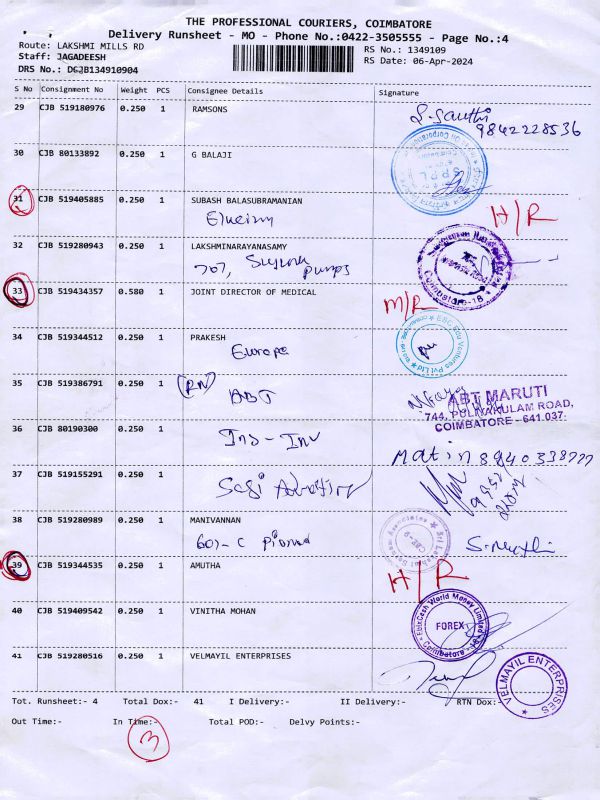 THE PROFESSIONAL COURIERS, COIMBATORE
Delivery Runsheet - MO - Phone No.:0422-3505555 - Page No.:4
Route: LAKSHMI MILLS RD
Staff: JAGADEESH
DRS No.: DCJB134910904
RS No.: 1349109
RS Date: 06-Apr-2024
S No Consignment No Weight PCS Consignee Details Signature
29 CJB 519180976 0.250 1 RAMSONS
9842228536
30 CJB 80133892 0.250 1 G BALAJI
31 CJB 519405885 0.250 1 SUBASH BALASUBRAMANIAN
H/R
32 CJB 519280943 0.250 1 LAKSHMINARAYANASAMY
707, Suguna pumps
Coimbatore-18
33 CJB 519434357 0.580 1 JOINT DIRECTOR OF MEDICAL
M/R
34 CJB 519344512 0.250 1 PRAKESH
Europe
35 CJB 519386791 0.250 1 (RN) ABT
ABT MARUTI
744, PULIYAKULAM ROAD,
COIMBATORE - 641 037.
36 CJB 80190300 0.250 1
Ins-Inv
Matin 8940338777
37 CJB 519155291 0.250 1
38 CJB 519280989 0.250 1 MANIVANNAN
39 CJB 519344535 0.250 1 AMUTHA
H/R
40 CJB 519409542 0.250 1 VINITHA MOHAN
EbixCash World Money Limited
FOREX
Coimbatore
41 CJB 519280516 0.250 1 VELMAYIL ENTERPRISES
VELMAYIL ENTERPRISES
Tot. Runsheet:- 4 Total Dox:- 41 I Delivery:- II Delivery:- RTN Dox:-
Out Time:- In Time:- Total POD:- Delvy Points:-
3